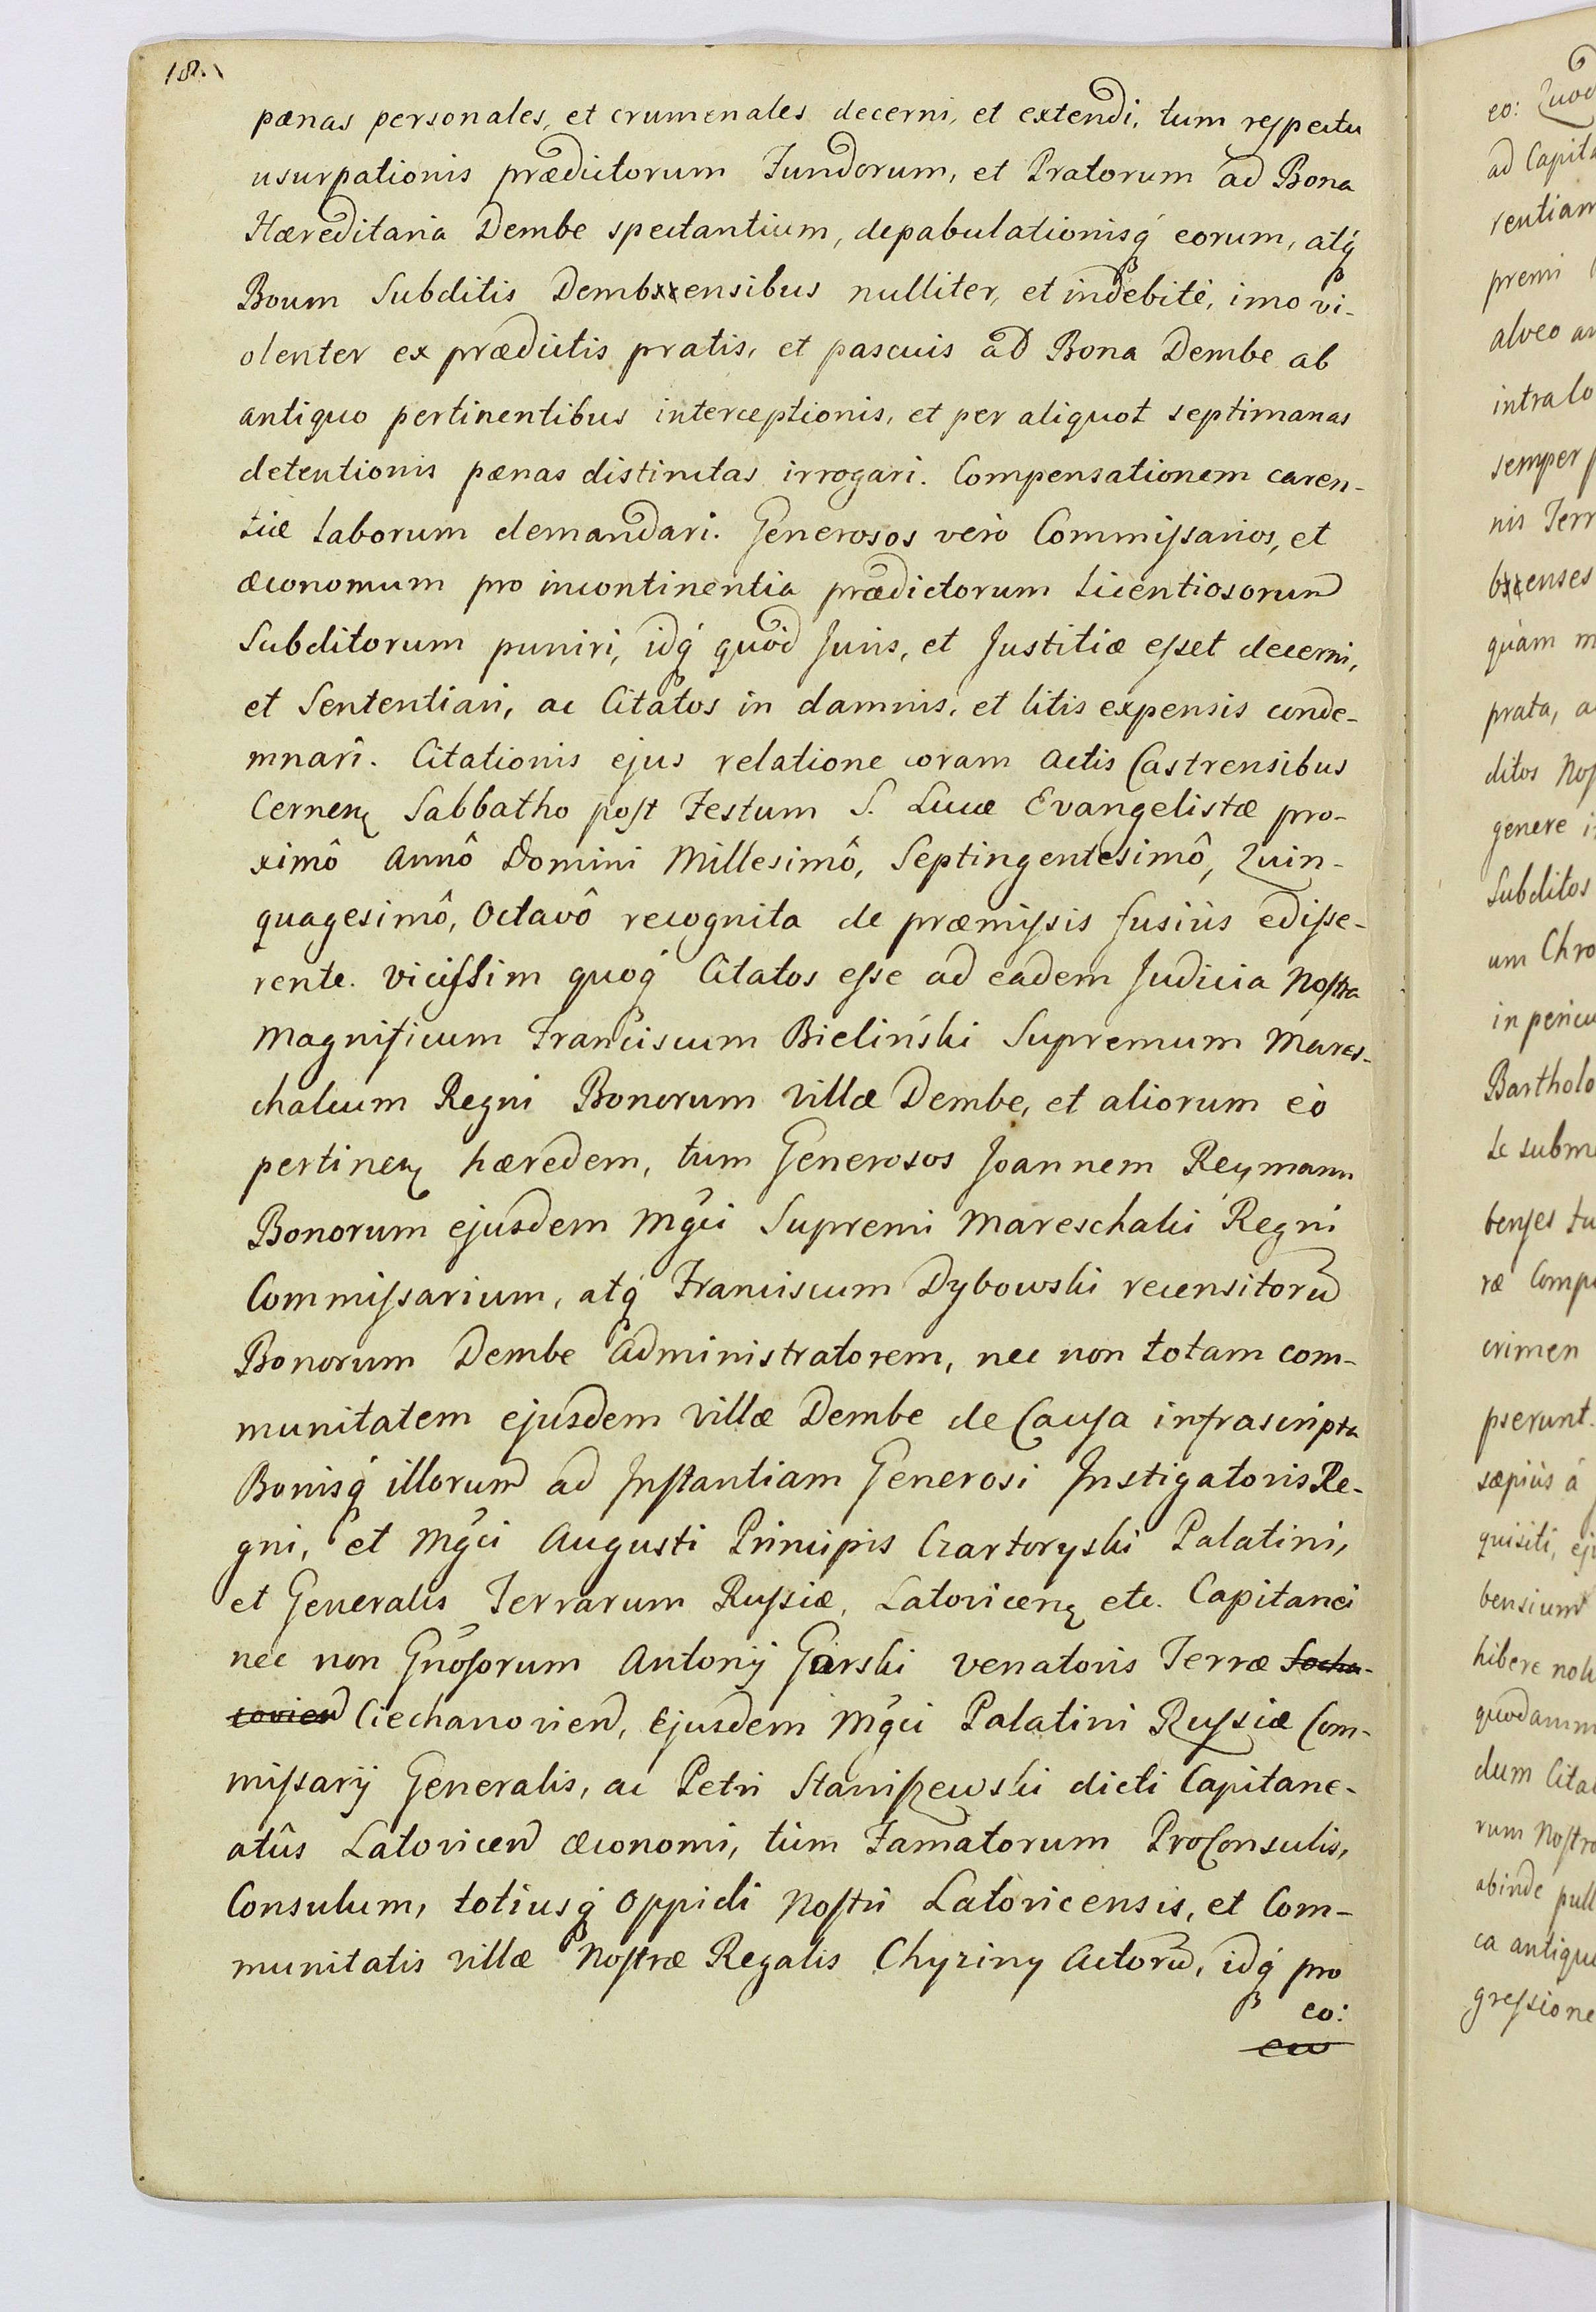 18.
pænas personales, et crumenales decerni, et extendi, tum respectu
usurpationis prædictorum Fundorum, et Pratorum ad Bona
Hæreditaria Dembe spectantium, depabulationisq́ eorum, atq́
Boum Subditis Dembxxensibus nulliter, et indebitè, imo vi-
olenter ex prædictis pratis, et pascuis ad Bona Dembe ab
antiquo pertinentibus interceptionis, et per aliquot septimanas
detentionis pænas distinctas irrogari. Compensationem caren-
tiæ laborum demandari. Generosos verò Commissarios, et
æconomum pro incontinentia prædictorum licentiosorum
Subditorum puniri, idq́ quòd Juris, et Justitiæ esset decerni,
et Sententiari, ac Citatos in damnis, et litis expensis conde-
mnari. Citationis ejus relatione coram Actis Castrensibus
Cernenꝫ Sabbatho post Festum S. Lucæ Evangelistæ pro-
ximô Annô Domini Millesimô, Septingentesimô, Quin-
quagesimô, Octavô recognita de præmissis fusiùs edisse-
rente. vicissim quoq́ Citatos esse ad eadem Judicia Nostra
Magnificum Franciscum Bieliński Supremum Mares-
chalcum Regni Bonorum Villæ Dembe, et aliorum eò
pertinenꝫ hæredem, tum Generosos Joannem Reymann
Bonorum ejusdem Mgci Supremi Mareschalci Regni
Commissarium, atq́ Franciscum Dybowski recensitorum
Bonorum Dembe Administratorem, nec non totam com-
munitatem ejusdem Villæ Dembe de Causa infrascripta
Bonisq́ illorum ad Instantiam Generosi Instigatoris Re-
gni, et Mgci Augusti Principis Czartoryski Palatini,
et Generalis Terrarum Russiæ, Latovicenꝫ etc. Capitanei
nec non Gnosorum Antonij Garski venatoris Terræ Socha-
covien Ciechanovien, Ejusdem Mgci Palatini Russiæ Com-
missarij Generalis, ac Petri Staniszewski dicti Capitane-
atûs Latovicen æconomi, tùm Famatorum ProConsulis,
Consulum, totiusq́ Oppidi Nostri Latovicensis, et Com-
munitatis villæ Nostræ Regalis Chyziny Actorum, idq́ pro
eo:
eo: Quod
ad Capita
rentiam
premi
alveo an
intra lo
semper p
nis Terr
bxxenses
quàm m
prata, a
ditos Nos
genere i
Subditos
um Chro
in pericu
Bartholo
se subme
benses tu
ræ Compu
crimen
pserunt.
sæpiùs á
quisiti, ej
bensium
hibere nol
quodamm
dum Citat
rum Nostro
abinde pull
ca antiqu
gressione